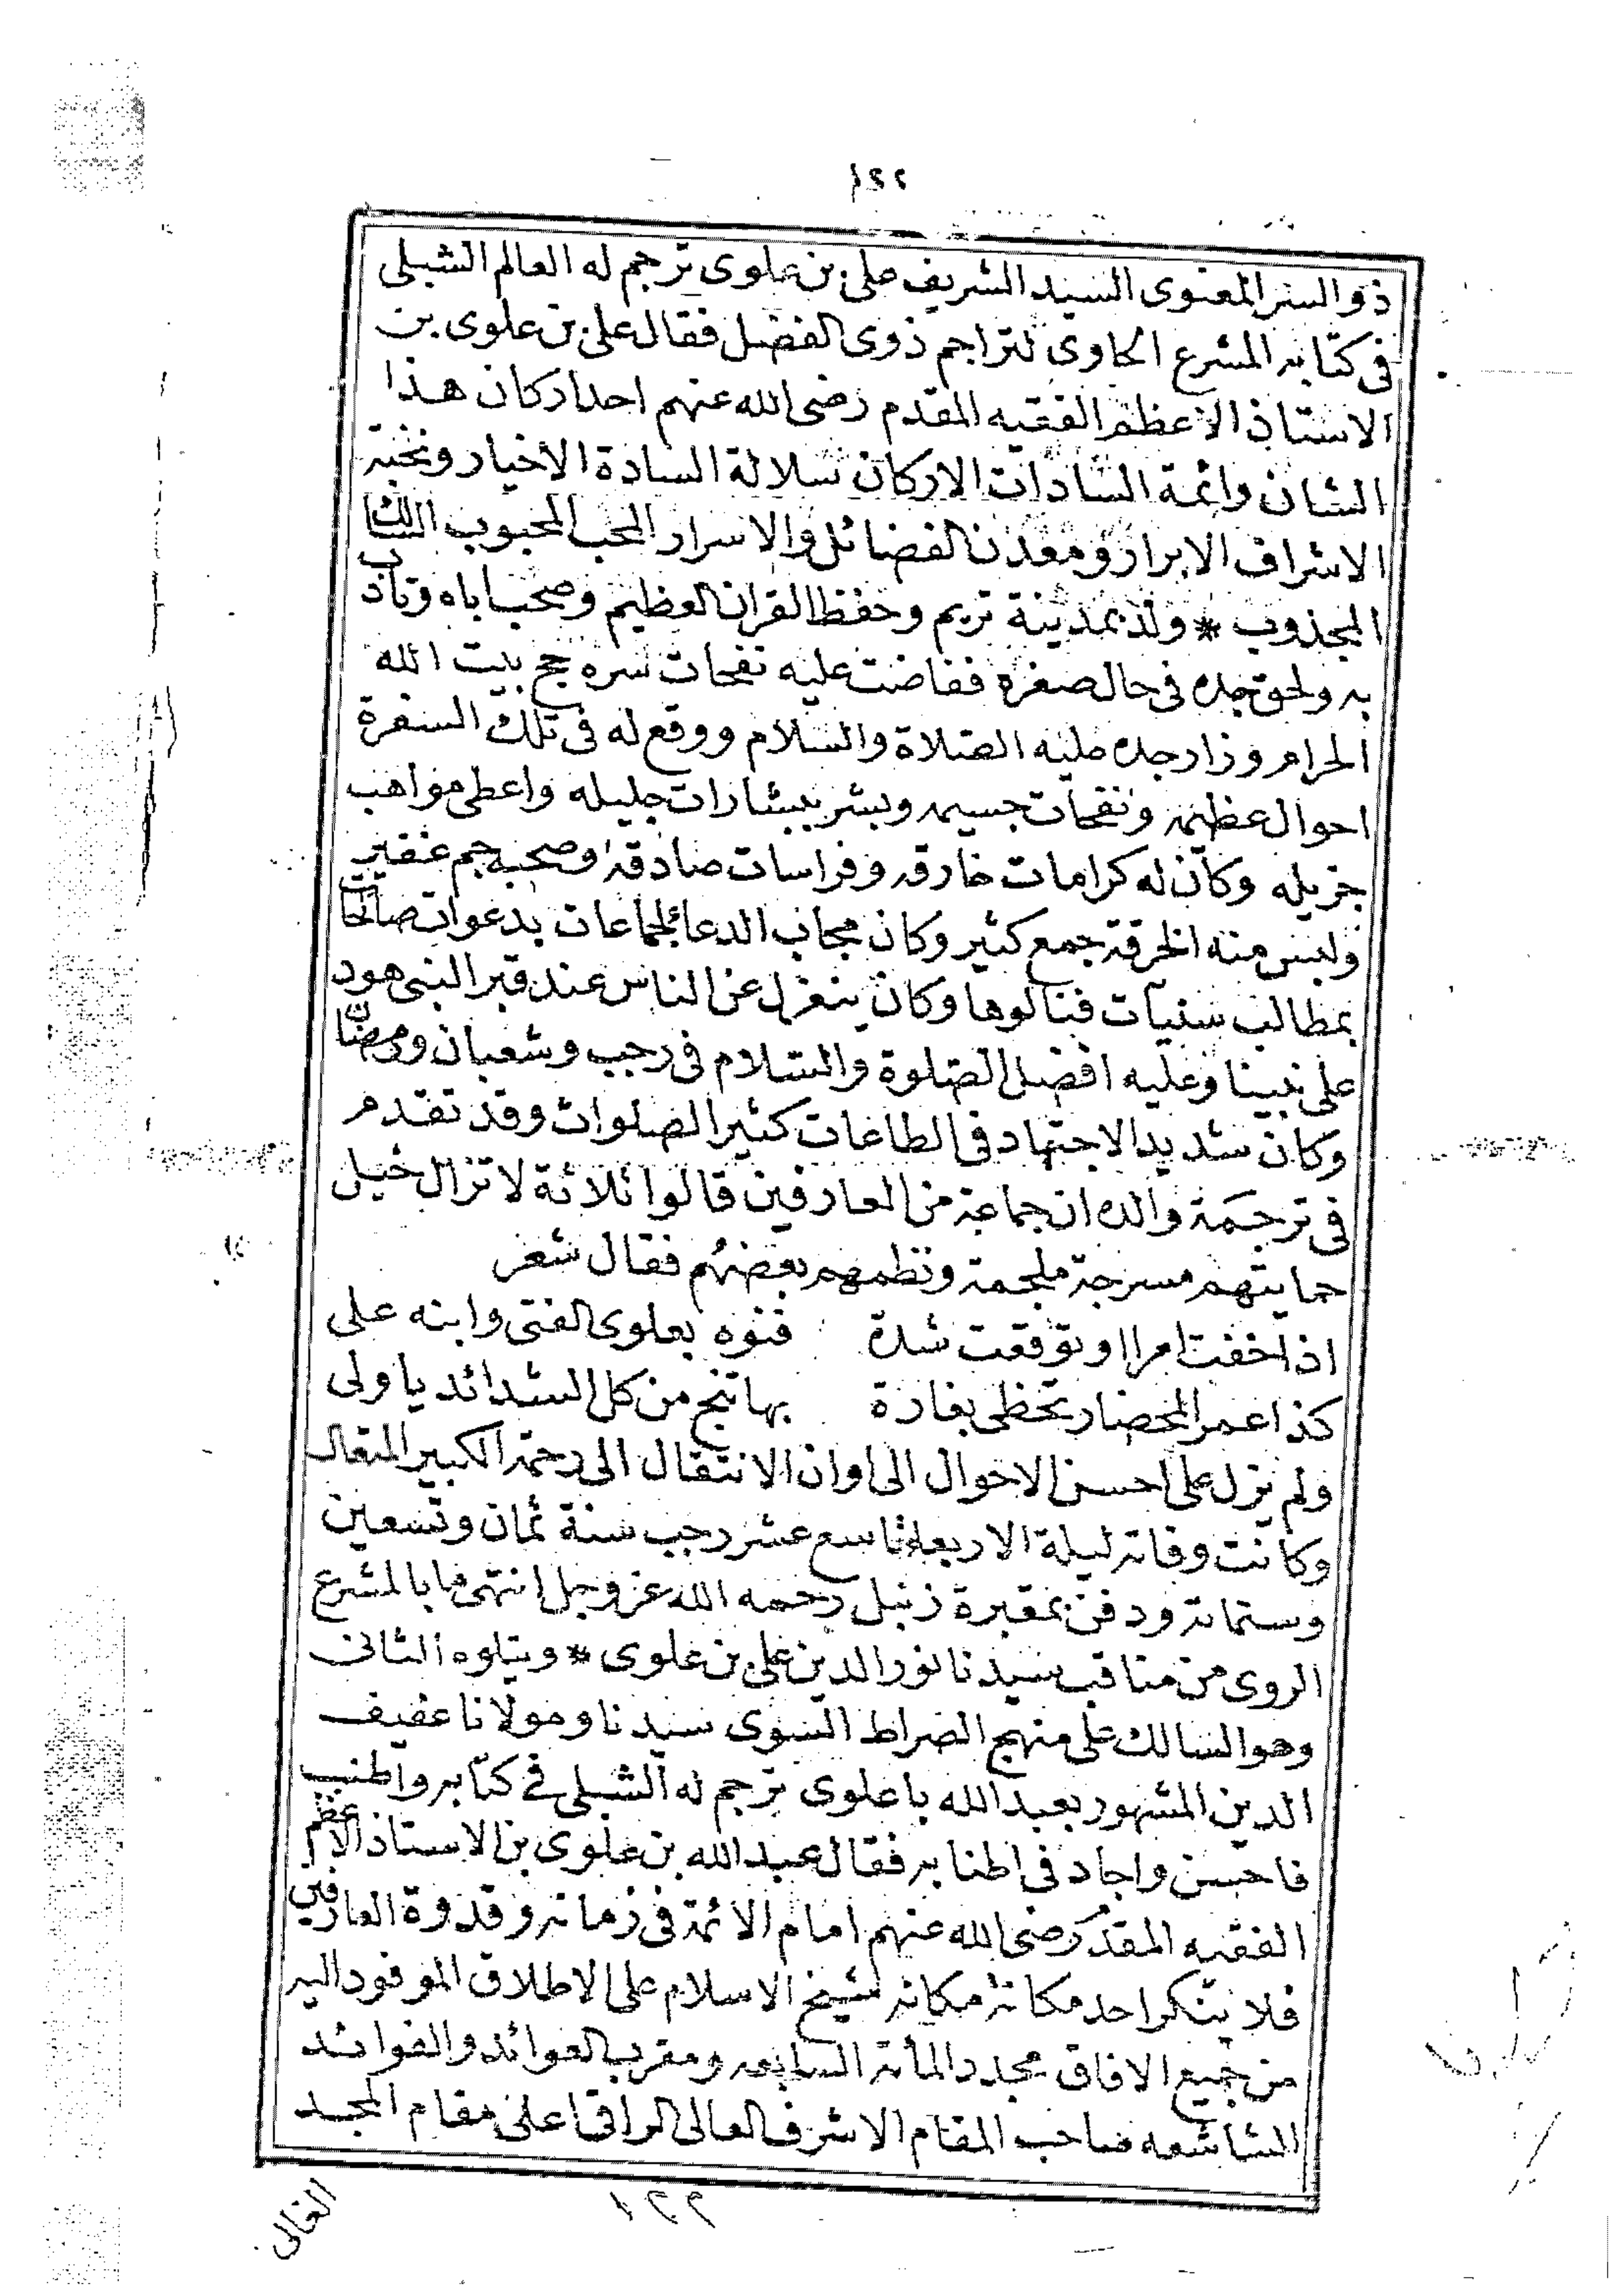 ١٢٢
ذو السر المعنوى السيد الشريف على بن علوى ترجم له العالم الشبلى
فى كتابه المشرع الحاوى لتراجم ذوى الفضل فقال على بن علوى بن
الاستاذ الاعظم الفقيه المقدم رضى الله عنهم احد اركان هذا
الشان وائمة السادات الاركان سلالة السادة الاخيار ونخبة
الاشراف الابرار ومعدن الفضائل والاسرار المحب المحبوب السالك
المجذوب * ولد بمدينة تريم وحفظ القران العظيم وصحب اباه وتادب
به ولحق جده فى حال صغره ففاضت عليه نفحات سره حج بيت الله
الحرام وزار جده عليه الصلاة والسلام ووقع له فى تلك السفرة
احوال عظيمه ونفحات جسيمه وبشر ببشارات جليله واعطى مواهب
جزيله وكان له كرامات خارقه وفراسات صادقه وصحبه جم غفير
ولبس منه الخرقة جمع كثير وكان مجاب الدعا لجماعات بدعوات صالحات
بمطالب سنيات فنالوها وكان ينعزل عن الناس عند قبر النبى هود
على نبينا وعليه افضل الصلوة والسلام فى رجب وشعبان ورمضان
وكان شديد الاجتهاد فى الطاعات كثير الصلوات وقد تقدم
فى ترجمة والده ان جماعة من العارفين قالوا ثلاثة لا تزال خيل
حمايتهم مسرجة ملجمة ونظمهم بعضهم فقال شعر
اذا خفت امرا او توقعت شدة فنوه بعلوى الفتى وابنه على
كذا عمر المحضار تحظى بغارة بها تنج من كل الشدائد يا ولى
ولم يزل على احسن الاحوال الى اوان الانتقال الى رحمة الكبير المتعال
وكانت وفاته ليلة الاربعا تاسع عشر رجب سنة ثمان وتسعين
وستمائة ودفن بمقبرة زنبل رحمه الله عز وجل انتهى ما بالمشرع
الروى من مناقب سيدنا نور الدين على بن علوى * ويتلوه الثانى
وهو السالك على منهج الصراط السوى سيدنا ومولانا عفيف
الدين المشهور بعبد الله باعلوى ترجم له الشبلى فى كتابه واطنب
فاحسن واجاد فى اطنابه فقال عبد الله بن علوى بن الاستاذ الاعظم
الفقيه المقدم رضى الله عنهم امام الائمة فى زمانه وقدوة العارفين
فلا ينكر احد مكانة مكانه شيخ الاسلام على الاطلاق الموفود اليه
من جميع الافاق مجدد المائة السابعه ومقرب العوائد والفوائد
الشاسعه صاحب المقام الاشرف العالى الراقى اعلى مقام المجد
الغالى
١٢٢